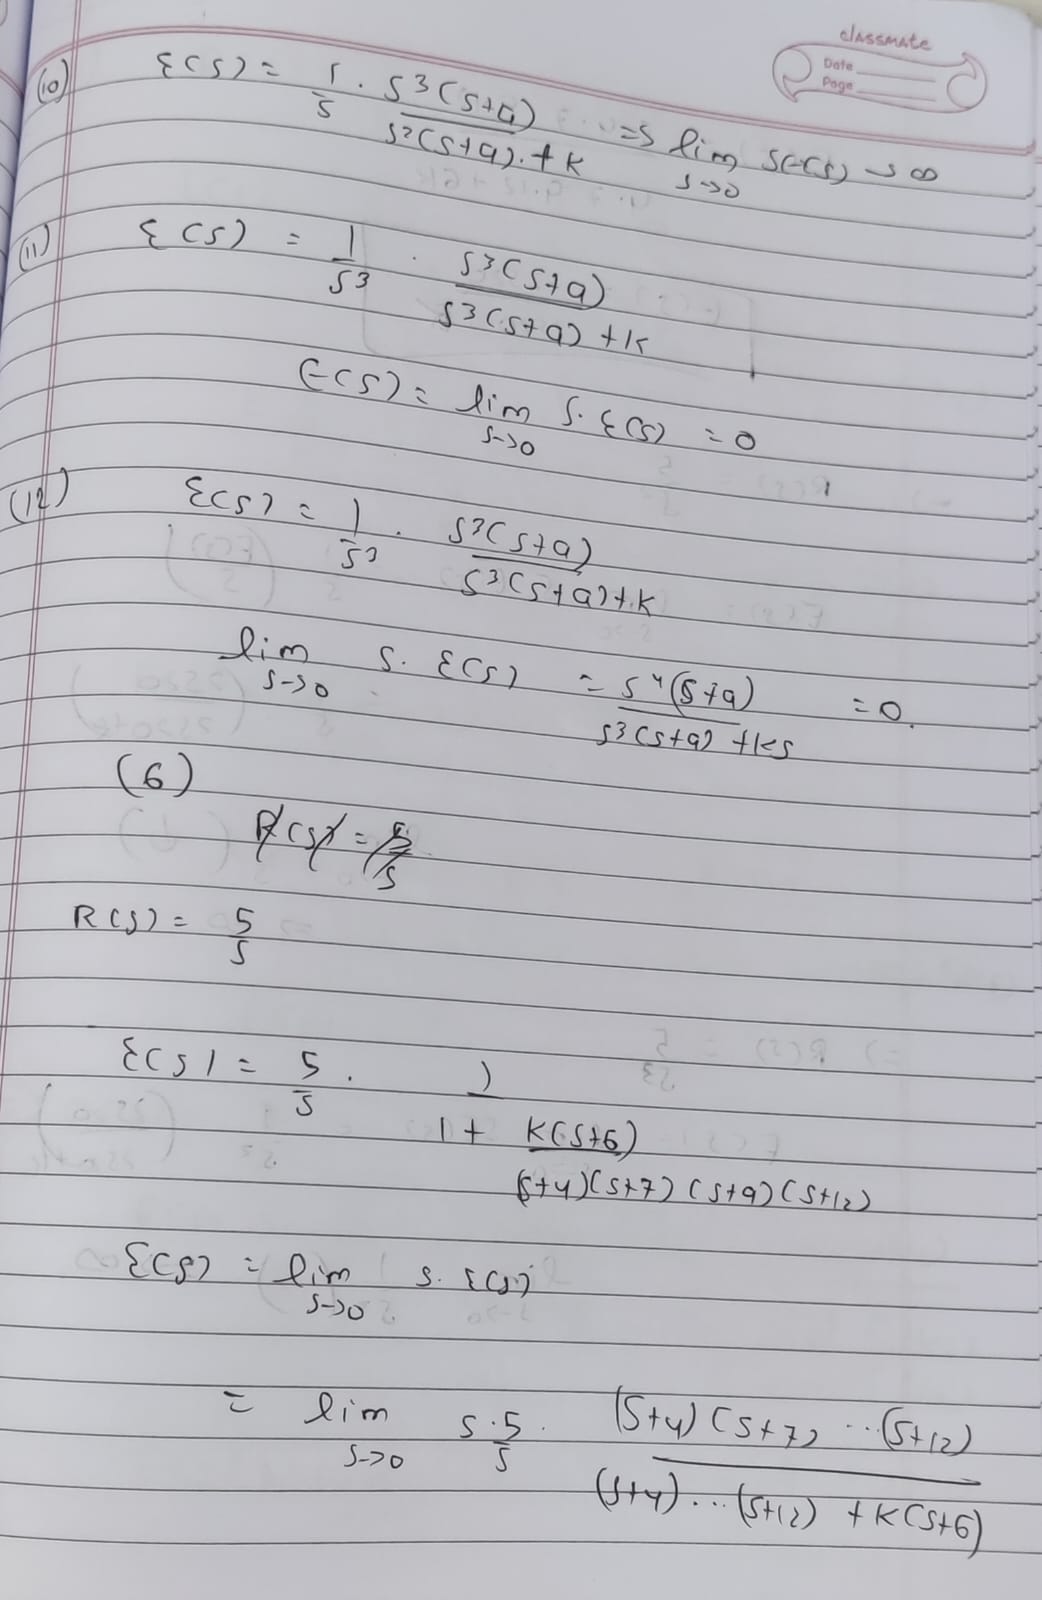 classmate
Date
Page
(10) ℰ(s) = 1/s · s³(s+a)/(s²(s+a)·+k) => lim s→0 s∈(s) → ∞
(11) ℰ(s) = 1/s³ · s³(s+a)/(s³(s+a)+k)
∈(s) = lim s→0 s·ℰ(s) = 0
(12) ℰ(s) = 1/s³ · s³(s+a)/(s³(s+a)+k)
lim s→0 s·ℰ(s) = s⁴(s+a)/(s³(s+a)+ks) = 0.
(6)
R(s) = 5/s
R(s) = 5/s
ℰ(s) = 5/s · 1/(1 + K(s+6)/((s+4)(s+7)(s+9)(s+12)))
ℰ(s) = lim s→0 s·ℰ(s)
= lim s→0 s·5/s · (s+4)(s+7)...(s+12)/((s+4)...(s+12) + K(s+6))